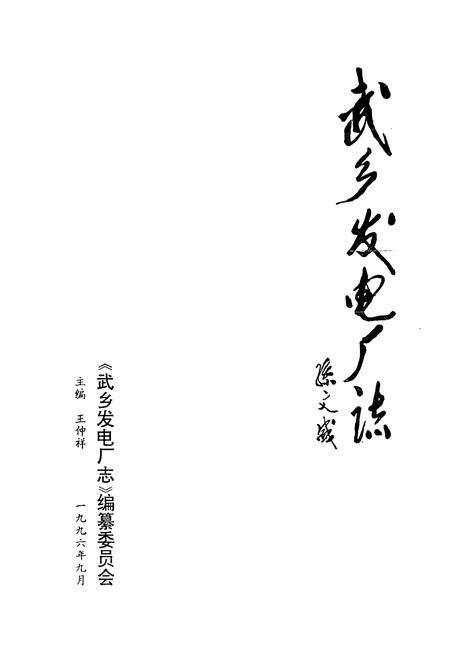 武乡发电厂誌
文盛
《武乡发电厂志》编纂委员会
主编 王仲祥
一九九六年九月